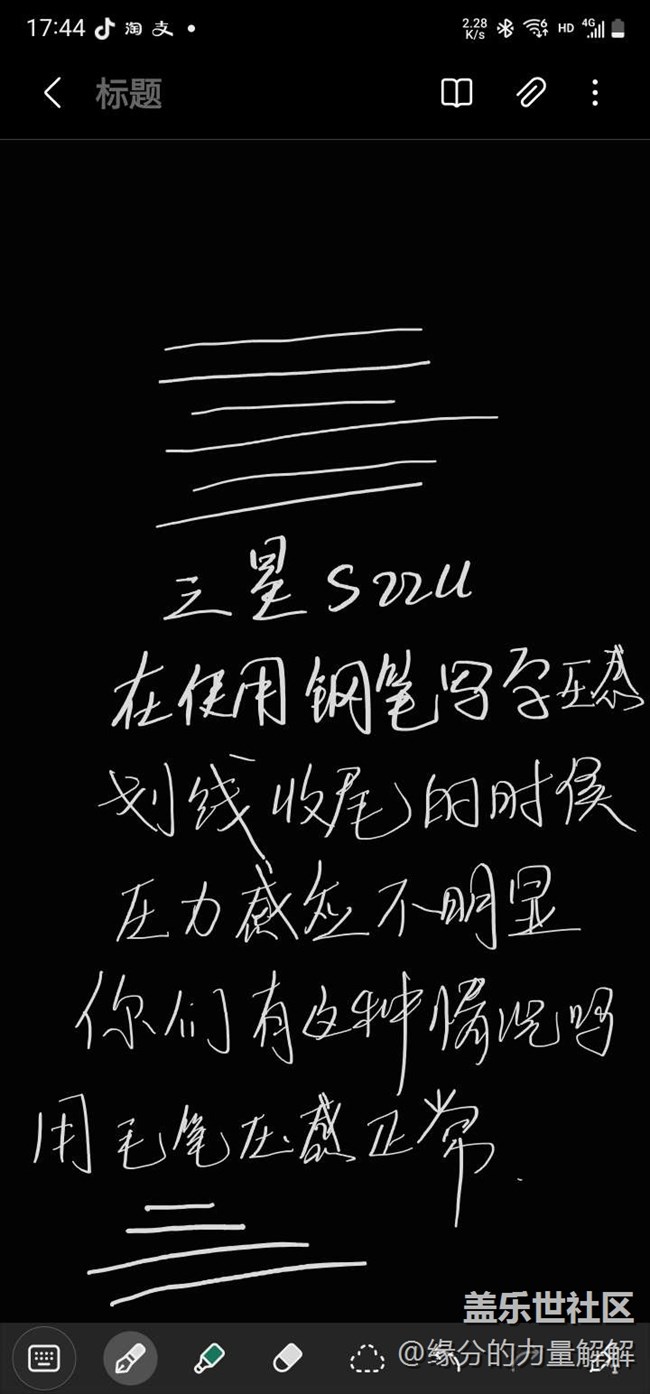 17:44 淘 支
2.28 K/s 6 HD 4G
标题
三星S22U
在使用钢笔写字压感
划线收尾的时候
压力感应不明显
你们有这种情况吗
用毛笔压感正常.
盖乐世社区
@缘分的力量解解